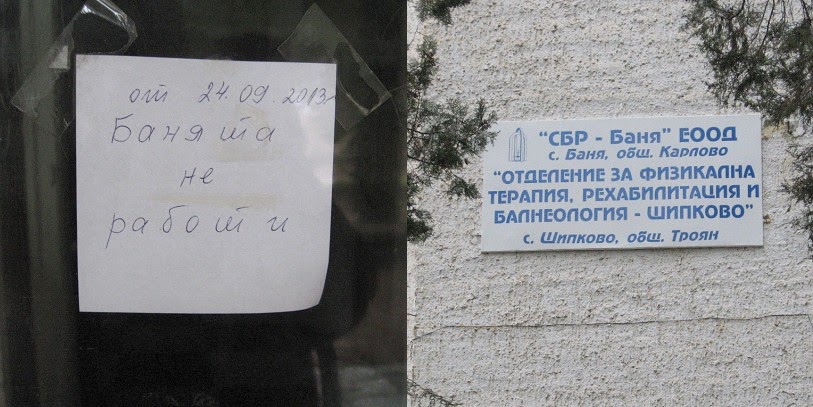 от 24.09.2013г
Банята
не
работи
"СБР - Баня" ЕООД
с. Баня, общ. Карлово
"ОТДЕЛЕНИЕ ЗА ФИЗИКАЛНА
ТЕРАПИЯ, РЕХАБИЛИТАЦИЯ И
БАЛНЕОЛОГИЯ - ШИПКОВО"
с. Шипково, общ. Троян